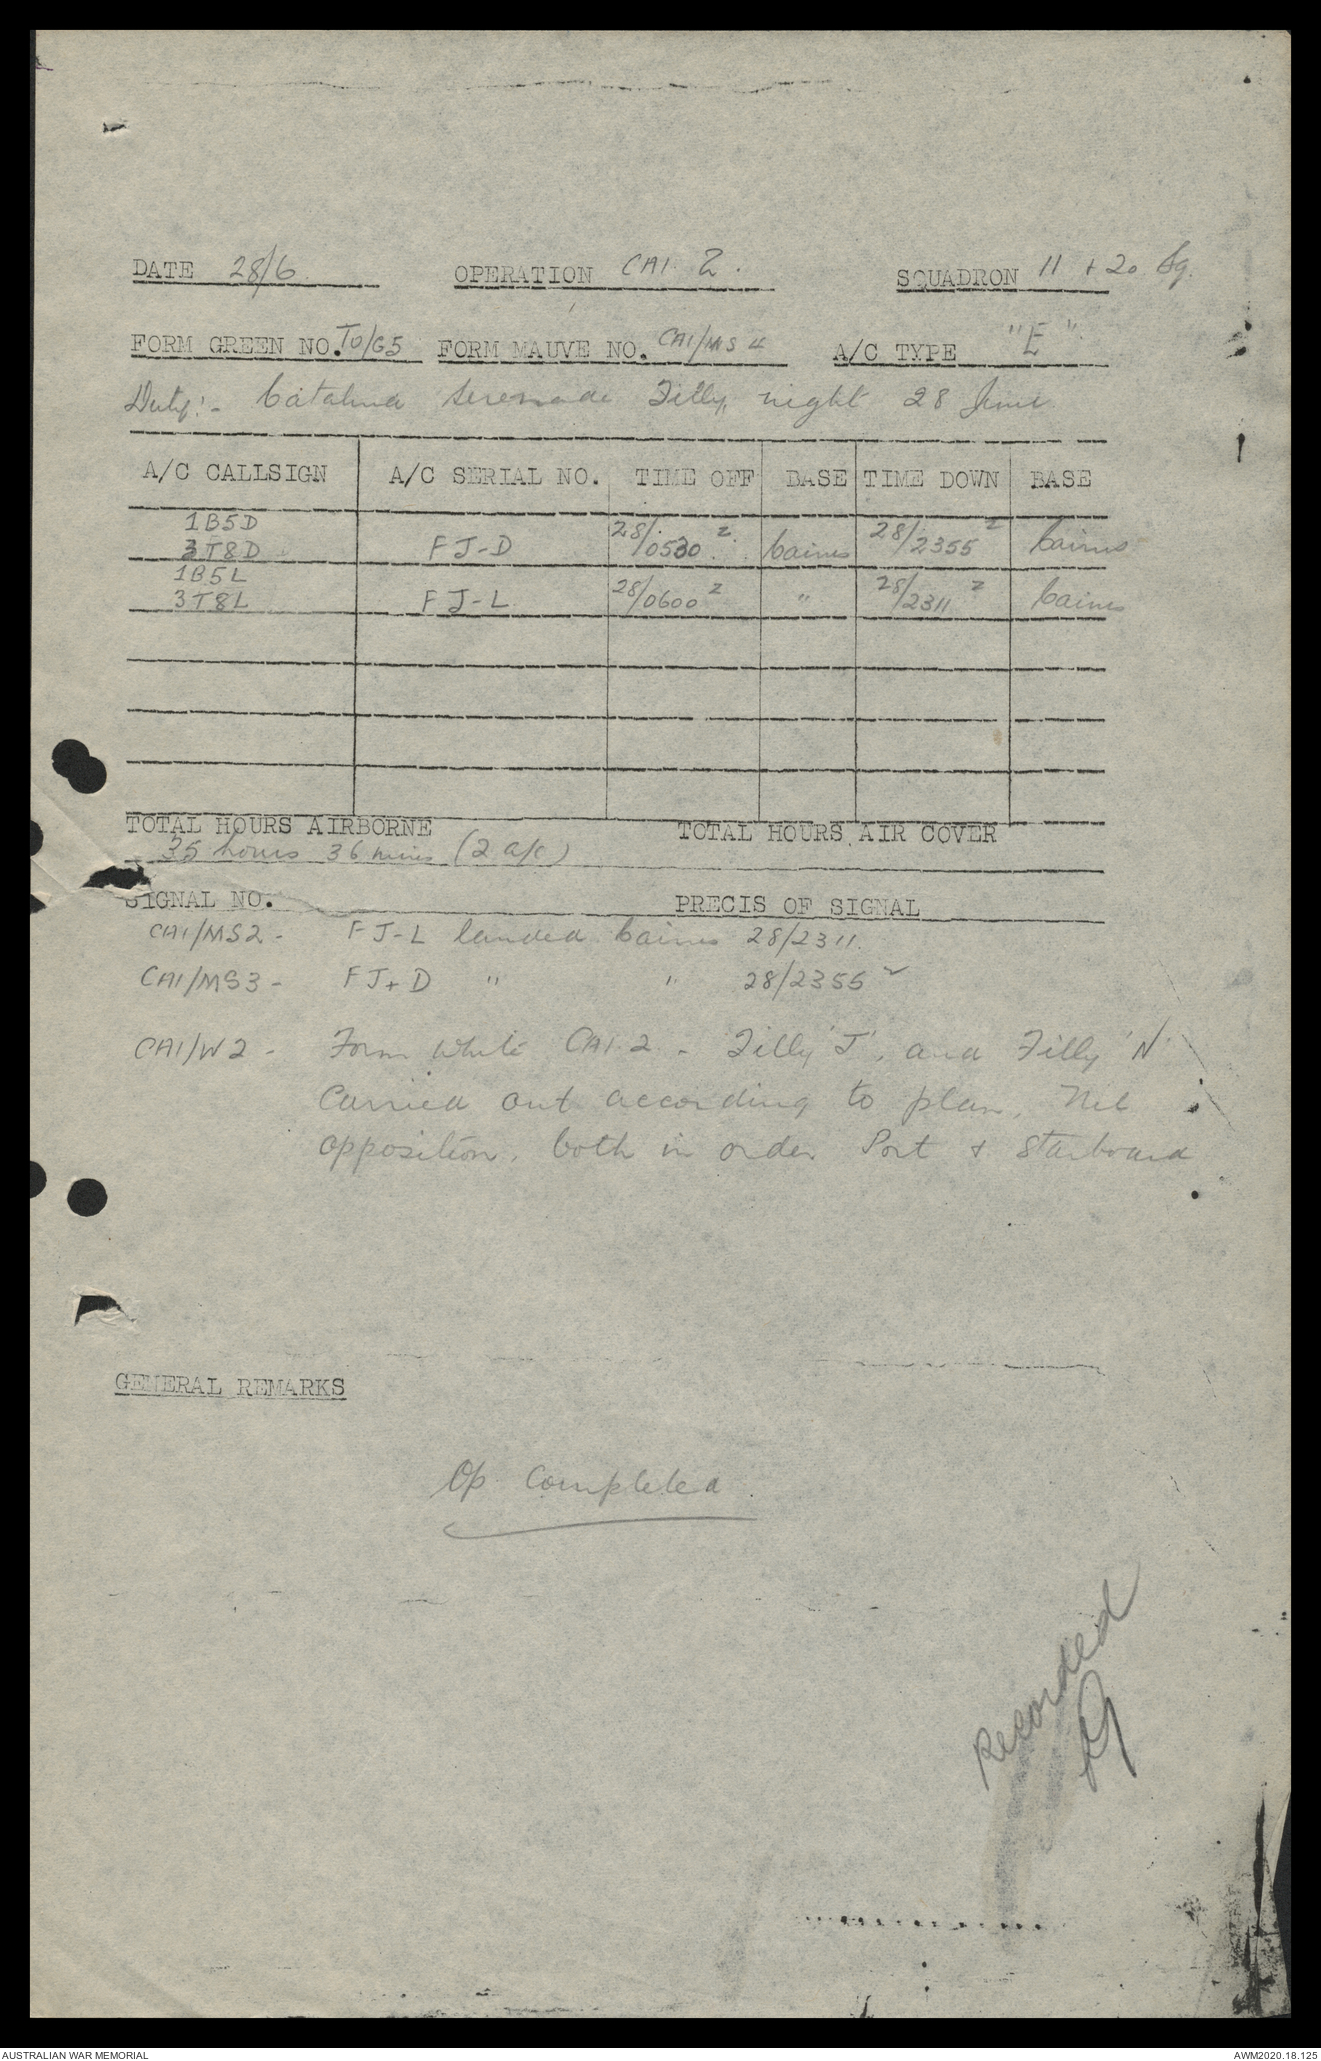 DATE 28/6 OPERATION CAI 2. SQUADRON 11 + 20 Sq.
FORM GREEN NO. TO/G5 FORM MAUVE NO. CAI/MS 4 A/C TYPE "E"
Duty:- Catalina Serenade Tilly, night 28 June
A/C CALLSIGN A/C SERIAL NO. TIME OFF BASE TIME DOWN BASE
1B5D
3T8D FJ-D 28/0530 Z. Cairns 28/2355 Z Cairns
1B5L
3T8L FJ-L 28/0600 Z " 28/2311 Z Cairns
TOTAL HOURS AIRBORNE TOTAL HOURS AIR COVER
35 hours 36 mins (2 a/c)
SIGNAL NO. PRECIS OF SIGNAL
CAI/MS2 - FJ-L landed Cairns 28/2311.
CAI/MS3 - FJ+D " " 28/2355 Z
CAI/W2 - Form White CAI 2 - Tilly 'J', and Tilly 'N'
Carried out according to plan. Nil
opposition. both in order Port & Starboard
GENERAL REMARKS
Op Completed.
Recorded
AUSTRALIAN WAR MEMORIAL AWM2020.18.125